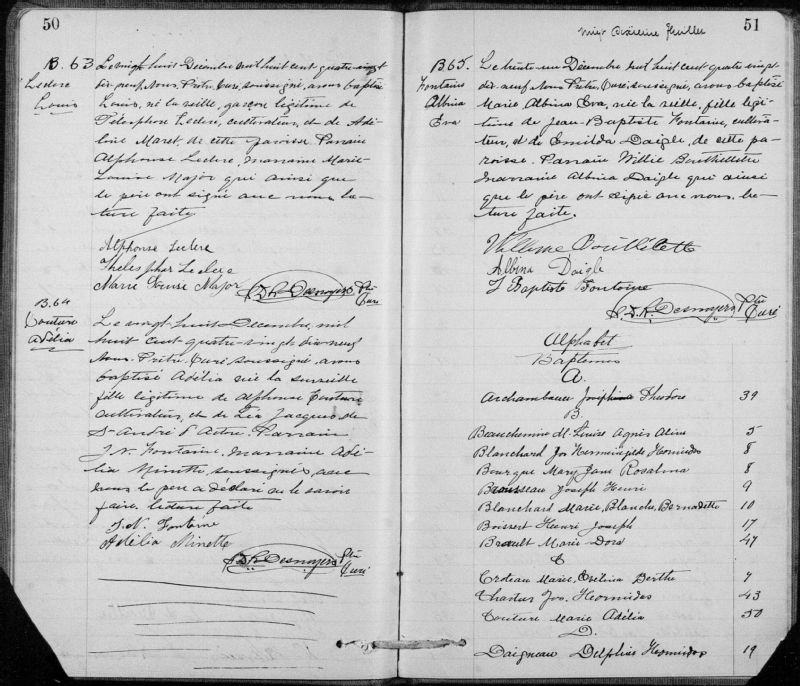 50
B. 63
Leclerc
Louis
Le vingt huit Décembre mil huit cent quatre-vingt
dix-neuf Nous, Prêtre, Curé, soussigné, avons baptisé
Louis, né la veille, garçon légitime de
Télesphore Leclerc, cultivateur, et de Adé-
line Maret, de cette paroisse Parrain
Alphonse Leclerc, marraine Marie-
Louise Major qui ainsi que
le père ont signé avec nous. Lec-
ture faite
Alphonse Leclerc
Thelesphor Leclerc
Marie Louise Major
J.D.R. Desnoyers Ptre
Curé
B. 64
Couture
Adélia
Le vingt-huit Decembre, mil
huit cent quatre-vingt dix neuf
Nous, Prêtre, Curé, soussigné, avons
baptisé Adélia née la surveille
fille légitime de Alphonse Couture
cultivateur, et de Léa Jacques, de
St André d'Acton. Parrain
J. N. Fontaine, marraine Adé-
lia Minette, soussignés, avec
nous. le père a déclaré ne le savoir
faire. lecture faite
J. N. Fontaine
Adélia Minette
J.D.R. Desnoyers Ptre
Curé
51
B. 65.
Fontaine
Albina
Eva
Le trente-un Décembre mil huit cent quatre vingt
dix-neuf Nous Prêtre, Curé, soussigné, avons baptisé
Marie Albina Eva, née la veille, fille légi-
time de Jean-Baptiste Fontaine, cultiva-
teur, et de Emilda Daigle, de cette pa-
roisse. Parrain Willie Bouthillette
marraine Albina Daigle qui ainsi
que le père ont signé avec nous. Lec-
ture faite.
Albina Daigle
J Baptiste Fontaine
J.D.R. Desnoyers Ptre
Curé
Alphabet
Baptemes
A.
Archambault Joséphine Théodore 39
B
Beauchemin M. Louise Agnès Alice 5
Blanchard Jos Herménégilde Hormidas 8
Bourque Mary Jane Rosalina 8
Brousseau Joseph Henri 9
Blanchard Marie, Blanche, Bernadette 10
Boisvert Henri Joseph 17
Brault Marie Dora 47
C
Croteau Marie, Exélina Berthe 7
Chartier Jos. Hormidas 43
Couture Marie Adélia 50
D.
Daigneau Delphis Hormidas 19